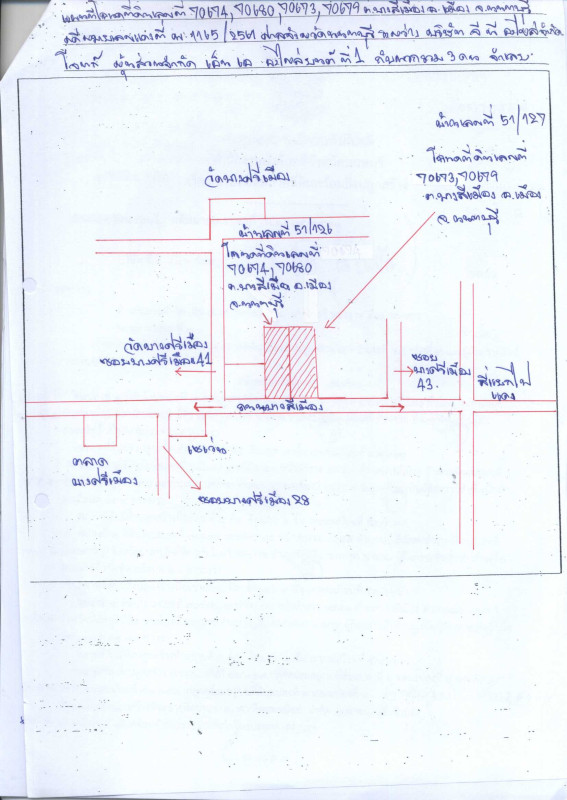 แผนที่โฉนดที่ดินเลขที่ 70674, 70680 70673, 70679 ต.บางศรีเมือง อ.เมือง จ.นนทบุรี
คดีหมายเลขแดงที่ ผบ. 1165/2561 ศาลจังหวัดนนทบุรี ระหว่าง บริษัท ซี ที อะไหล่ จำกัด
โจทก์ ห้างหุ้นส่วนจำกัด อะไหล่ยนต์ ที่ 1 กับพวกรวม 3 คน จำเลย
บ้านเลขที่ 51/127
โฉนดที่ดินเลขที่
70673, 70679
ต.บางศรีเมือง อ.เมือง
จ.นนทบุรี
วัดบางศรีเมือง
บ้านเลขที่ 51/126
โฉนดที่ดินเลขที่
70674, 70680
ต.บางศรีเมือง อ.เมือง
จ.นนทบุรี
วัดบางศรีเมือง
ซอยบางศรีเมือง 41
ซอย
บางศรีเมือง
43.
สี่แยกไฟ
แดง
ถนนบางศรีเมือง
ตลาด
บางศรีเมือง
เซเว่น
ซอยบางศรีเมือง 28